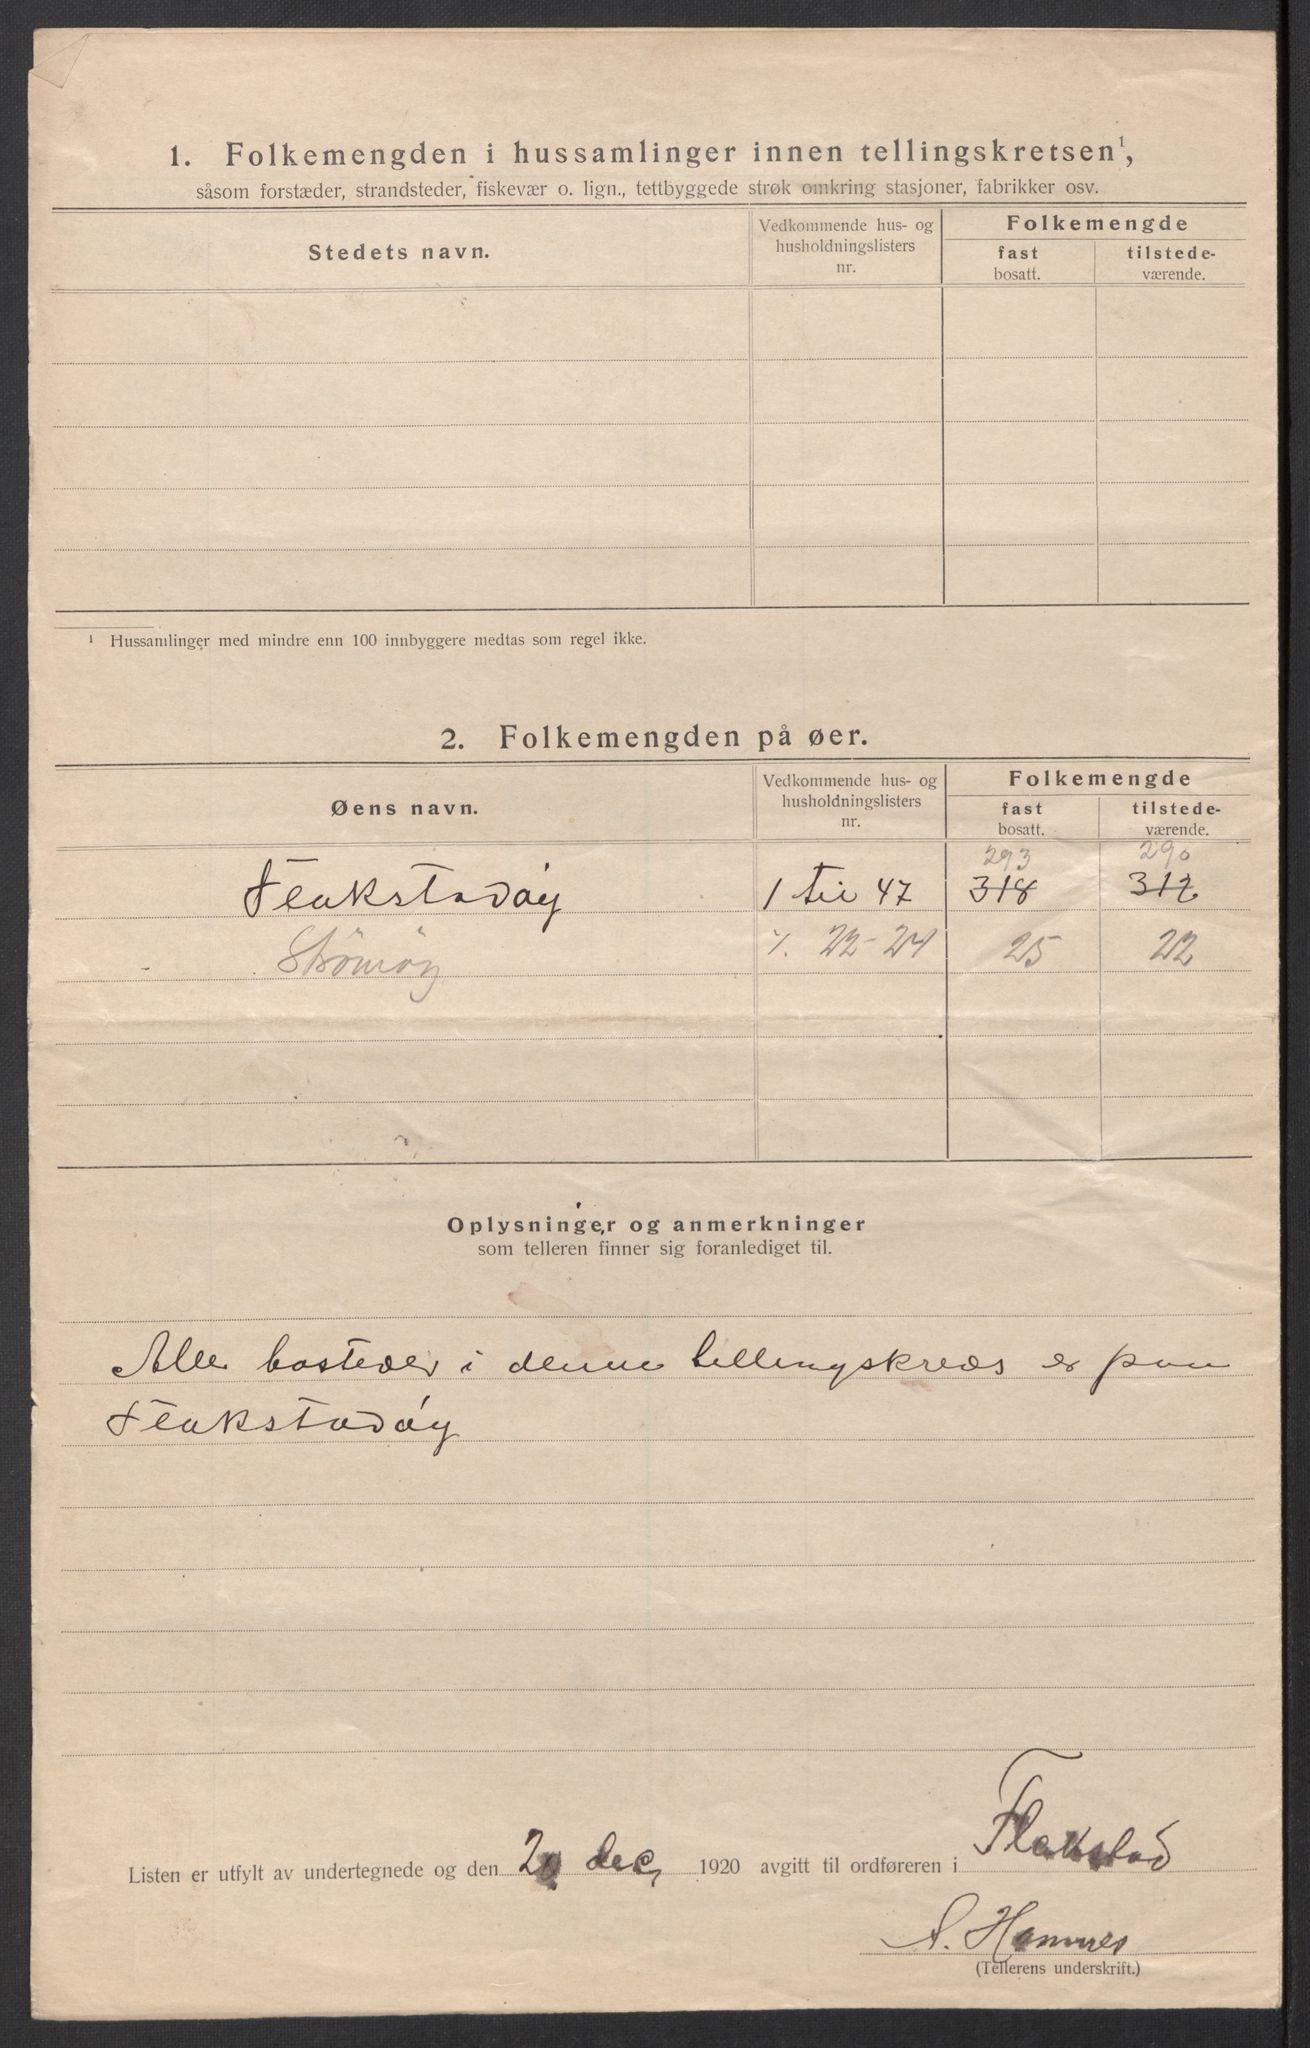 1. Folkemengden i hussamlinger innen tellingskretsen¹,
såsom forstæder, strandsteder, fiskevær o. lign., tettbyggede strøk omkring stasjoner, fabrikker osv.
Stedets navn.
Vedkommende hus- og
husholdningslisters
nr.
Folkemengde
fast
bosatt.
tilstede-
værende.
¹ Hussamlinger med mindre enn 100 innbyggere medtas som regel ikke.
2. Folkemengden på øer.
Øens navn.
Vedkommende hus- og
husholdningslisters
nr.
Folkemengde
fast
bosatt.
tilstede-
værende.
293 290
Flakstadøy 1 til 47 318 312
Strömöy 22-24 25 22
Oplysninger og anmerkninger
som telleren finner sig foranlediget til.
Alle bosteder i denne tellingskreds er paa
Flakstadøy
Listen er utfylt av undertegnede og den 20 dec, 1920 avgitt til ordføreren i Flakstad
A. Hamnes
(Tellerens underskrift.)